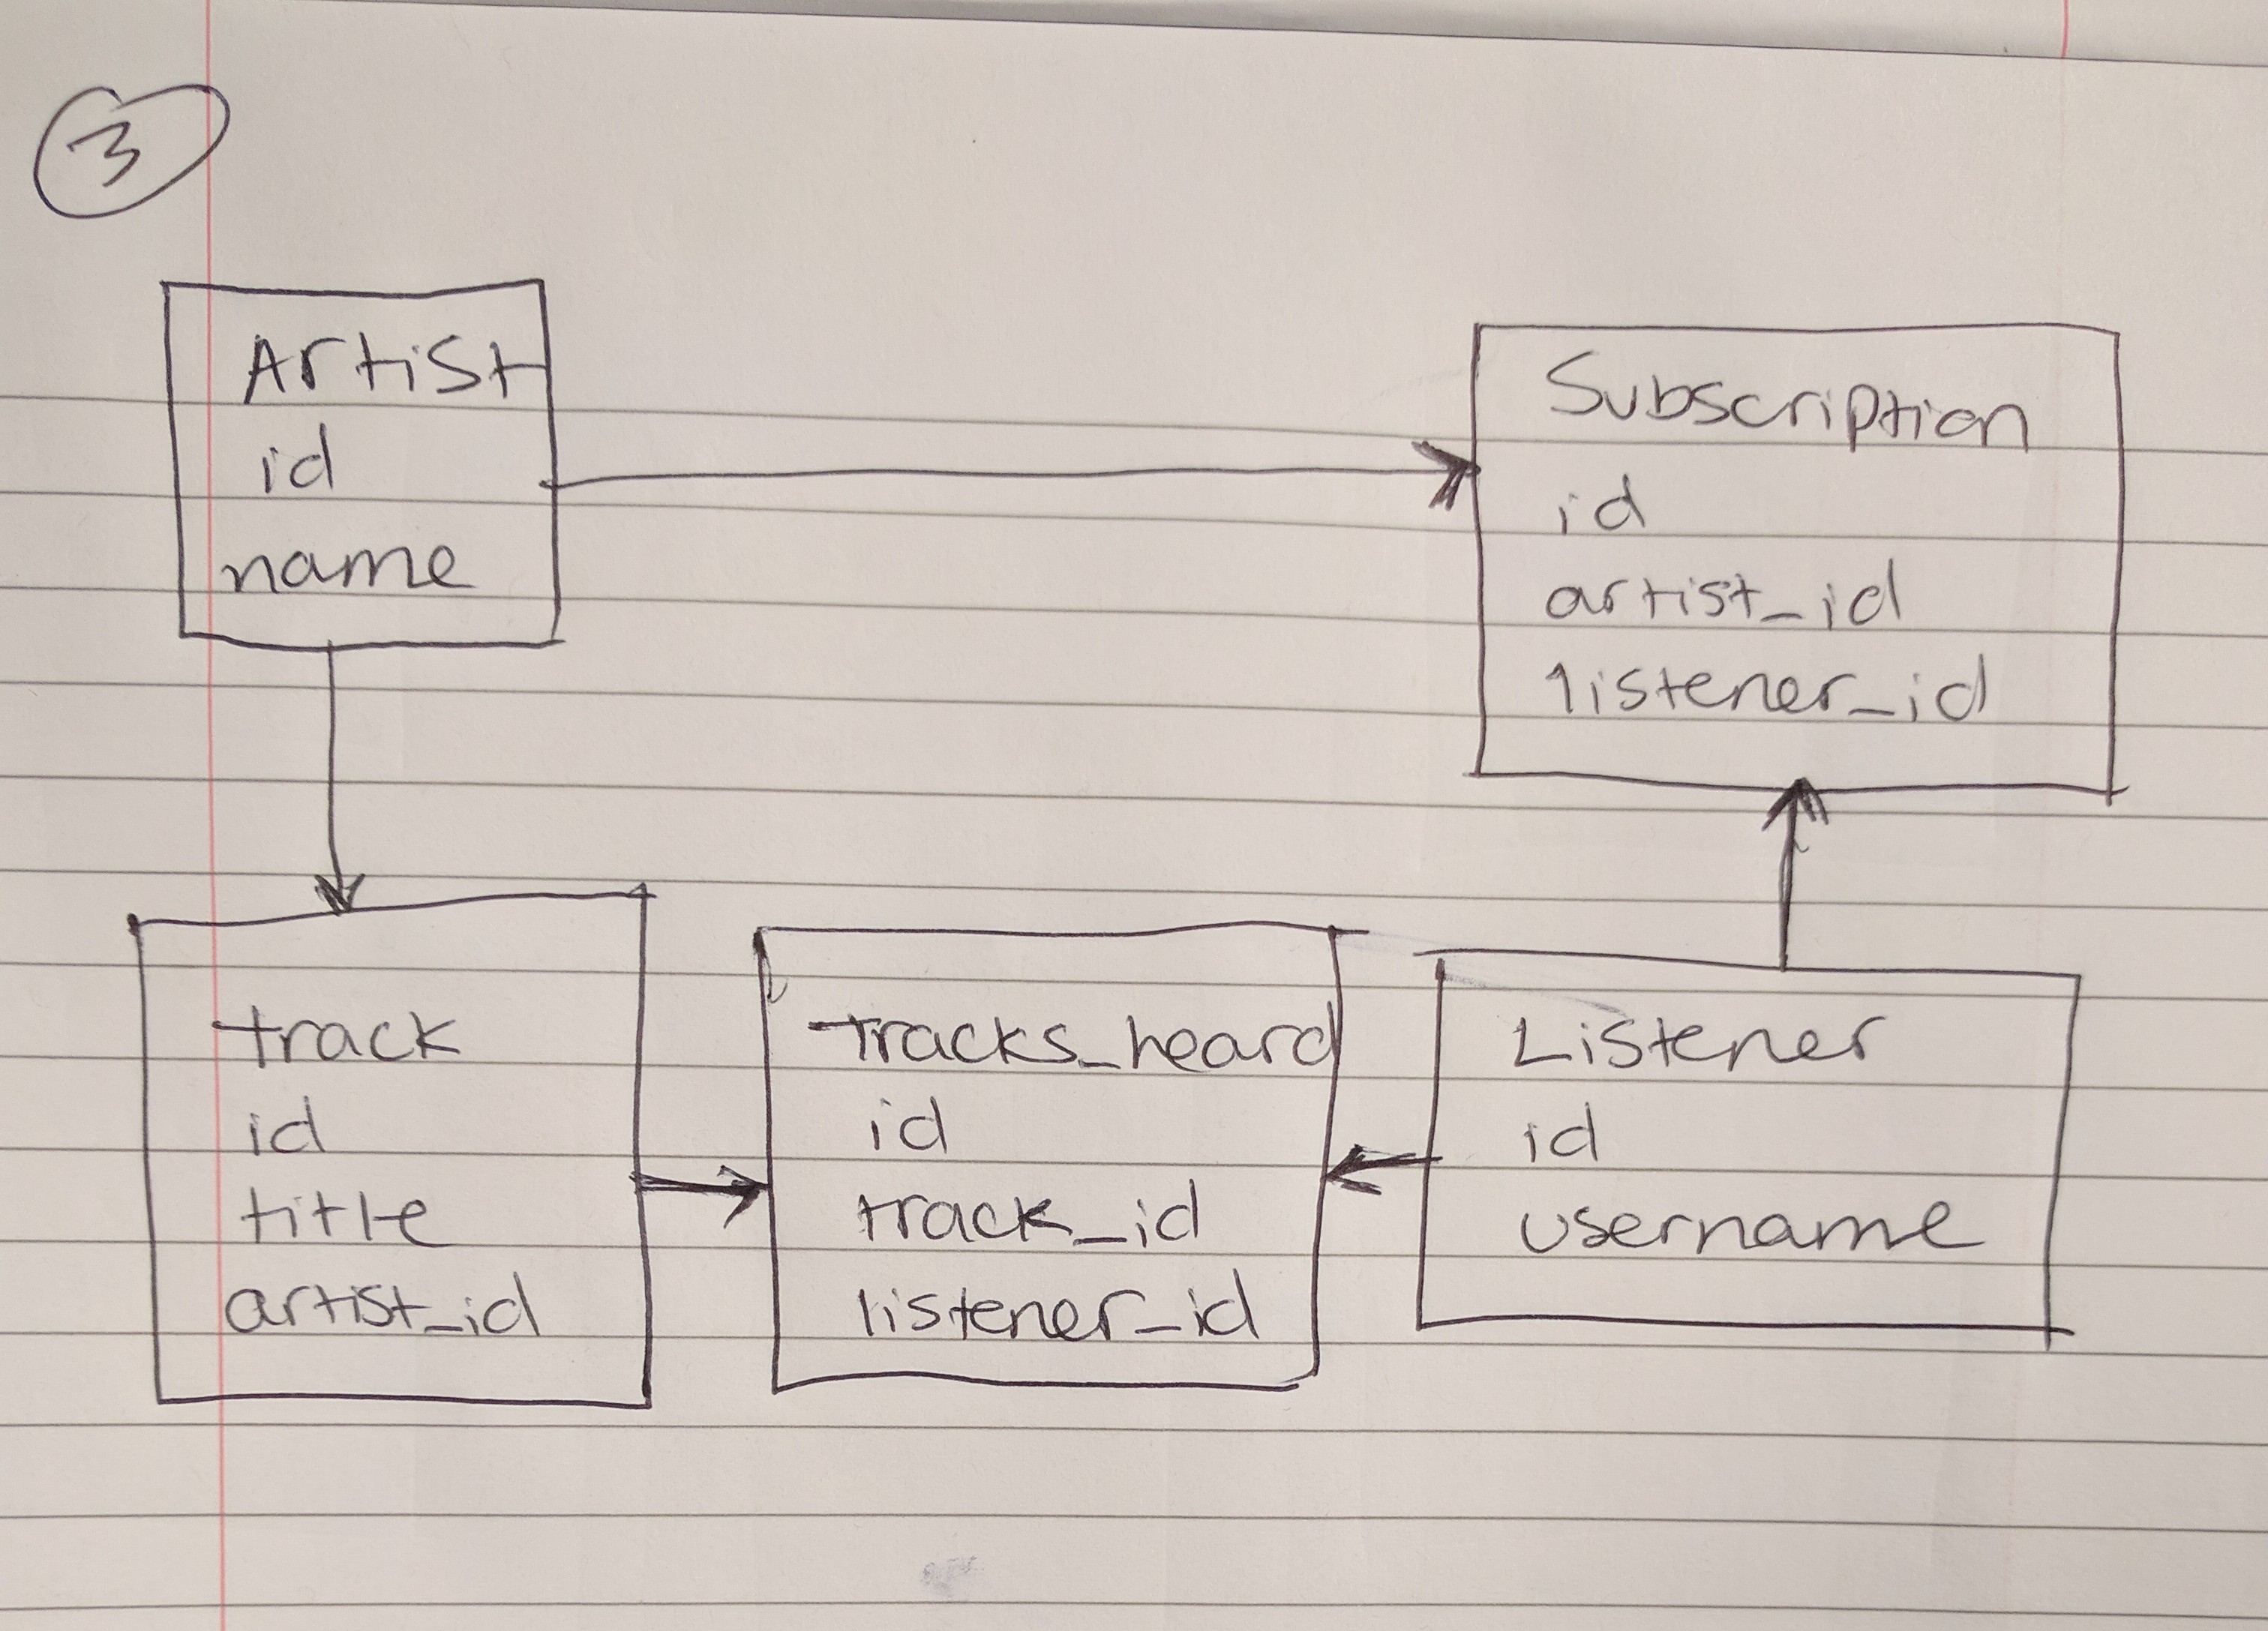 3
Artist
id
name
Subscription
id
artist_id
listener_id
track
id
title
artist_id
Tracks_heard
id
track_id
listener_id
Listener
id
username